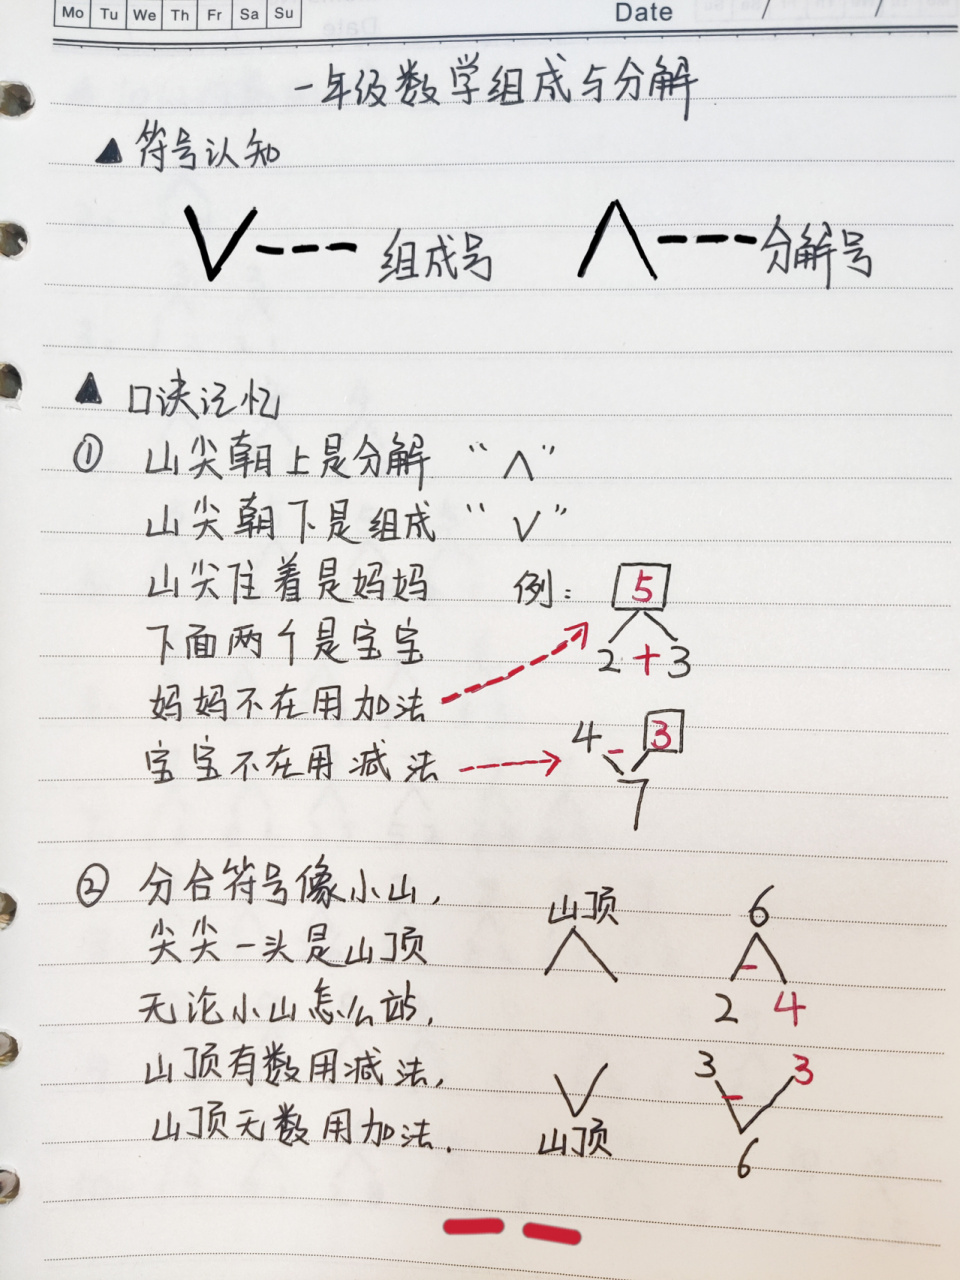 Mo Tu We Th Fr Sa Su
Date / /
一年级数学组成与分解
▲ 符号认知
∨ --- 组成号 ∧ --- 分解号
▲ 口诀记忆
① 山尖朝上是分解 “∧”
山尖朝下是组成 “∨”
山尖住着是妈妈 例: 5
下面两个是宝宝 2 + 3
妈妈不在用加法
4 - 3
宝宝不在用减法
7
② 分合符号像小山, 山顶 6
尖尖一头是山顶 -
无论小山怎么站, 2 4
山顶有数用减法, 3 - 3
山顶无数用加法. 山顶 6